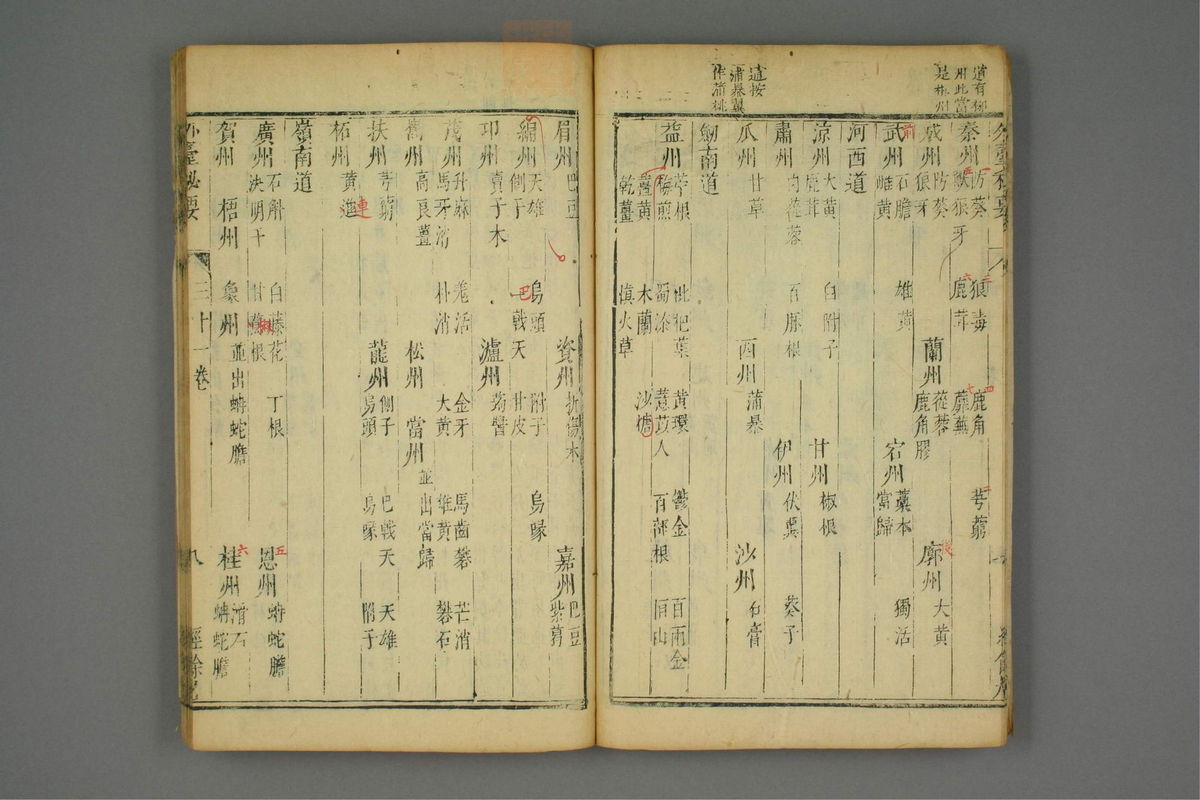 道有柳
州此當
是郴州
秦州 防葵 獸狼牙 狼毒 鹿茸 鹿角 蘼蕪 芎藭
成州 防葵 狼牙 蘭州 蓯蓉 鹿角膠 廓州 大黃
武州 石膽 雌黃 雄黃 宕州 藁本 當歸 獨活
河西道
涼州 大黃 鹿茸 白附子 甘州 椒根
肅州 肉蓯蓉 百脈根 伊州 伏翼 葵子
道按
蒲暴翼
作蒲桃
瓜州 甘草 西州 蒲暴 沙州 石膏
劒南道
益州 苧根 枇杷葉 黃環 鬱金 百兩金
梅煎 蜀漆 薏苡人 百部根 恒山
薑黃 木蘭 沙糖
乾薑 滇火草
眉州 巴豆 資州 折傷木 嘉州 巴豆 紫葛
綿州 天雄 側子 烏頭 巴戟天 附子 甘皮 烏喙
卭州 賣子木 瀘州 蒟醬
茂州 升麻 馬牙消 羌活 朴消 金牙 大黃 馬齒礬 雄黃 芒消 礬石
巂州 高良薑 松州 當州 並出當歸
扶州 芎藭 龍州 側子 烏頭 巴戟天 烏喙 天雄 附子
柘州 黃連
嶺南道
廣州 石斛 決明子 白藤花 甘 根 丁根 恩州 蚺蛇膽
賀州 梧州 象州 並出蚺蛇膽 桂州 滑石 蚺蛇膽
外臺秘要 三十一卷 八 經餘居